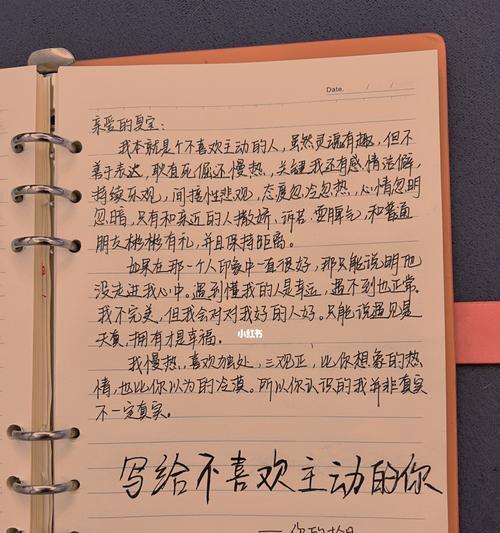 Date.    /    /
亲爱的夏宝：
我本就是个不喜欢主动的人，虽然灵魂有趣，但不
善于表达，敏有死倔还慢热，关键我还有感情洁癖，
持续乐观，间接性悲观，态度忽冷忽热，心情忽明
忽暗，只有和亲近的人撒娇，诉苦，耍脾气，和普通
朋友彬彬有礼，并且保持距离。
如果在那一个人印象中一直很好，那只能说明他
没走进我心中。遇到懂我的人是幸运，遇不到也正常。
我不完美，但我会对对我好的人好。只能说遇见是
天意，拥有才是幸福。
小红书
我慢热，喜欢独处，三观正，比你想象的热
情，也比你以为的冷漠。所以你认识的我并非真实
不一定真实。
写给不喜欢主动的你